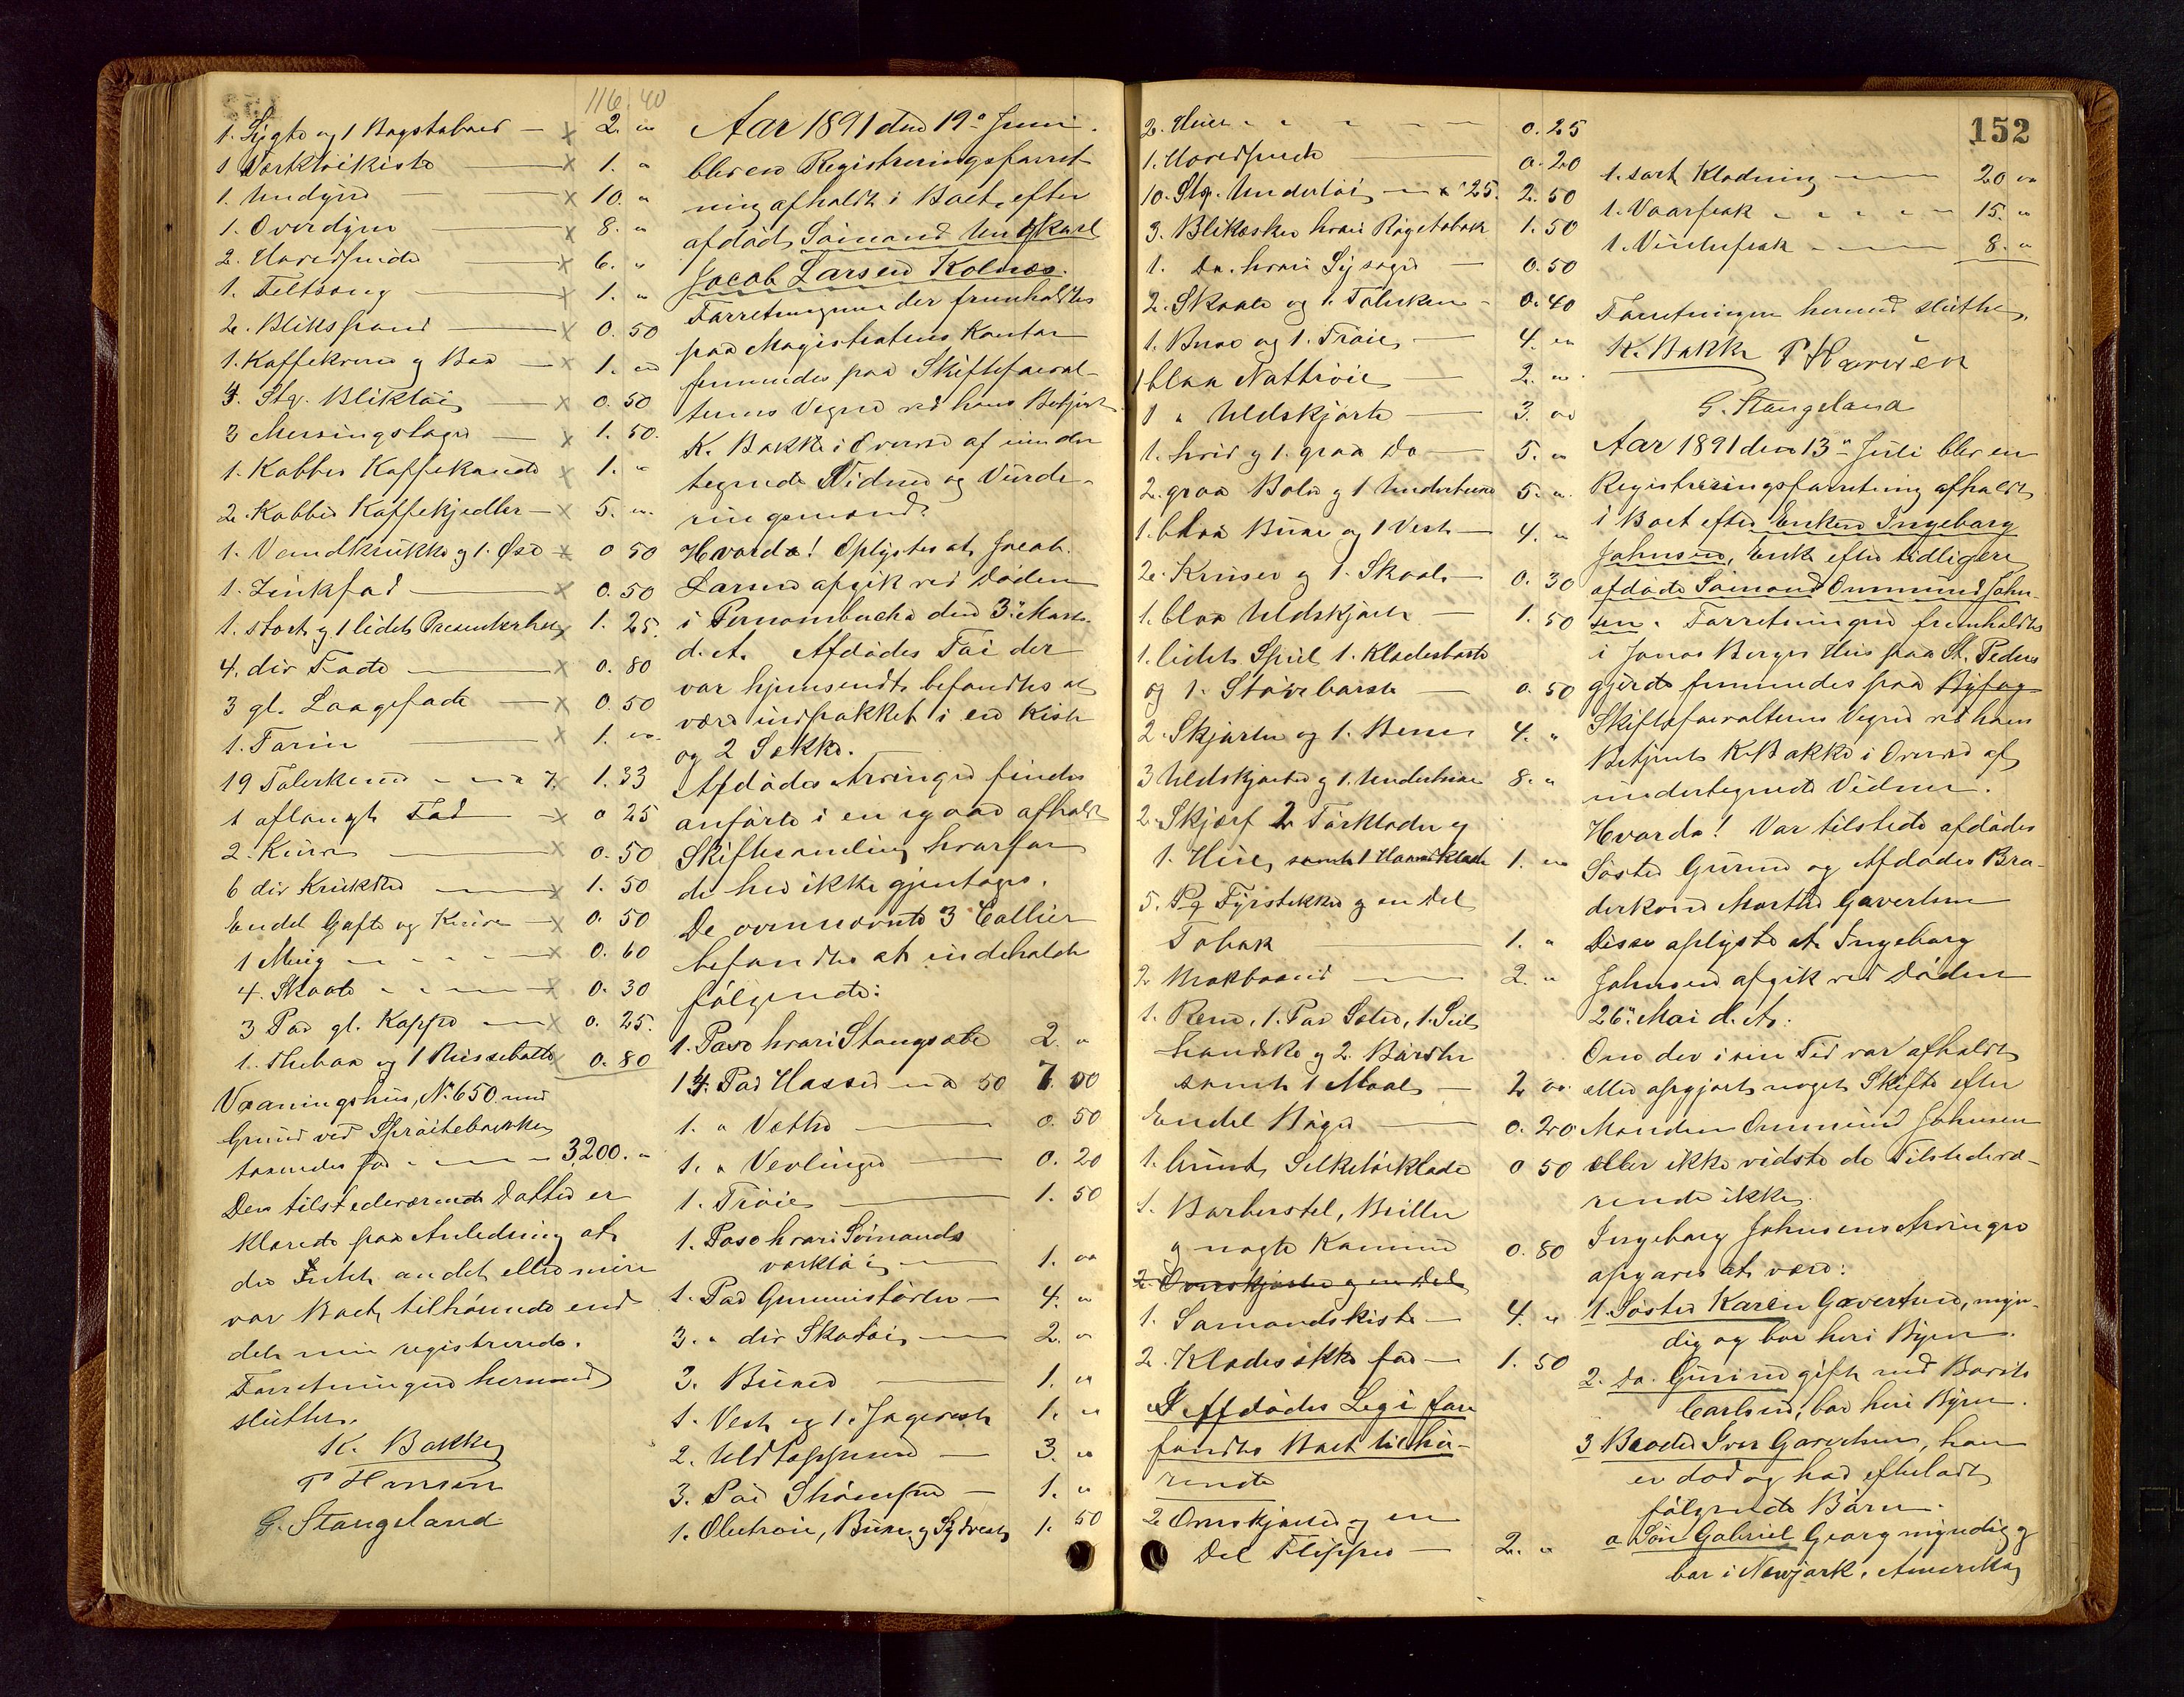 116.40
1. Lygte og 1 Bagstebord — x 2. "
1 Værktøikiste — x 1. "
1. Underdyne — x 10. "
1. Overdyne — x 8. "
2. Hovedpuder — x 6. "
1. Feltseng — x 1. "
2. Blikspand — x 0.50
1. Kaffekværn og Bæ — x 1. "
4. Stq. Bliktøi — x 0.50
3 Messingstager — x 1.50.
1. Kobber Kaffekande x 1. "
2. Kobber Kaffekjedler — x 5. "
1. Vandkrukke og 1. Øse x 0 50
1. Zinkfad — x 0.50
1. stort og 1 lidet Presenterbr. x 1.25.
4. div Fade — x 0.80
3 gl. Laagefade — x 0.50
1. Tarin — x 1. "
19 Talerkener — a 7. x 1.33
1 aflangt Fad — x 0 25
2. Kurve — x 0.50
6 div Krukker — x 1.50
Endel Gafle og Knive — x 0.50
1 Mug — x 0.60
4. Skaale — x 0.30
3 Par gl. Kopper — x 0.25.
1. Thebox og 1 Rissebøtte x 0.80
Vaaningshus, No 650 med
Grund ved Sprøitebakken
taxeredes for — 3200. "
Den tilstedeværende Datter er
klærede paa Anledning at
der Intet andet eller mere
var Boet tilhørende end
det nu registrerede.
Forretningen hermed
sluttet.
K. Bakke
P Hansen
G. Stangeland
Aar 1891 den 19de Juni
blev en Registreringsforret-
ning afholdt i Boet efter
afdøde Sømand Ungkarl
Jacob Larsen Kolnes.
Forretningen der fremholdtes
paa Magistratens Kontor
fremmedes paa Skifteforval-
terens Vegne ved hans Betjent
K. Bakke i Overvær af under
tegnede Vidner og Vurde-
ringsmænd.
Hvorda! Oplystes at Jacob
Larsen afgik ved Døden
i Pernambucha den 3. Marts
d. A. Afdødes Tøi der
var hjemsendt befandtes at
være indpakket i en Kiste
og 2 Sække.
Afdødes Arvinger findes
anførte i en igaar afholdt
Skiftesamling hvorfor
de her ikke gjentages.
De ovennævnte 3 Collier
befandtes at indeholde
følgende:
1. Pose hvori Stangsabe 2. "
14. Par Hoser — a 50 7.00
1. " Vatter — 0.50
1. " Vevlinger — 0.20
1. Trøie — 1.50
1. Pose hvori Sømands
værktøi — 1. "
1. Par Gummistøvler — 4. "
3. " div Skotøi — 2. "
3. Buxer — 1. "
1. Vest og 1. Jagervest 1. "
2. Uldtæppener — 3. "
3. Par Strømper — 1. "
1. Olietrøie, Buxe og Sydvest 1.50
152
2. Huer — 0.25
1. Hovedpude — 0.20
10. Stq. Undertøi — a 25. 2.50
3. Blikæsker hvori Røgetobak 1.50
1. Do. hvori Sysager — 0.50
2. Skaale og 1. Talerken — 0.40
1. Buxe og 1. Trøie — 4. "
1 blaa Nattrøie — 2. "
1 " Uldskjorte — 3. "
1. hvid og 1. graa Do — 5. "
2. graa Bolv og 1 Underbuxe 5. "
1. blaa Buxe og 1 Vest — 4. "
2. Kruser og 1. Skaal — 0.30
1. blaa Uldskjorte — 1.50
1. lidet Speil 1. Klædesbørste
og 1. Støvebørste — 0.50
2. Skjorter og 1. Bener 4. "
3 Uldskjorter og 1. Underbuxe 8. "
2. Skjærf 2 Tørklæder og
1. Hue, samt 1 Haandklæde 1. "
5. Pq Fyrstikker og en Del
Tobak — 1. "
2 Urokbaand — 2. "
1. Rem, 1. Par Seler, 1. Seil
handske og 2. Børster
samt 1 Maal — 2 "
Endel Bøger — 0.20
1. bunt Silketørklæde 0 50
1. Barberstel, Briller
og nogle Kammer 0.80
2 Overskjorter og en Del
1. Sømandskiste — 4. "
2. Klædesække for — 1.50
I Afdødes Logi fore
fandtes Boet tilhø-
rende
2 Overskjorter og en
Del Flipper — 2. "
1. sort Klædning — 20 "
1. Vaarfrak — 15. "
1. Vinterfrak — 8. "
Forretningen hermed sluttet.
K. Bakke P Hansen
G. Stangeland
Aar 1891 den 13de Juli blev en
Registreringsforretning afholdt
i Boet efter Enken Ingeborg
Johnsen, Enke efter tidligere
afdøde Sømand Ommund John-
sen. Forretningen fremholdtes
i Jonas Berges Hus paa St. Peders
gjerde fremmedes paa Byfog
Skifteforvalterens Vegne ved hans
Betjent K. Bakke i Overvær af
undertegnede Vidner.
Hvorda! Var tilstede afdødes
Søster Gurine og Afdødes Bro-
derkone Marthe Gavertsen
Disse oplyste at Ingeborg
Johnsen afgik ved Døden
26. Mai d. A.
Om der i sin Tid var afholdt
eller opgjort noget Skifte efter
Manden Ommund Johnsen
eller ikke vidste de Tilstedevæ-
rende ikke.
Ingeborg Johnsens Arvinger
opgaves at være:
1. Søster Karen Gavertsen, myn-
dig og boe heri Byen.
2. Do. Gurine gift med Børits
Carlsen, boe heri Byen.
3 Broder Iver Gavertsen, han
er død og har efterladt
følgende Børn.
a Søn Gabriel Georg myndig og
bor i Newjork, Amerika